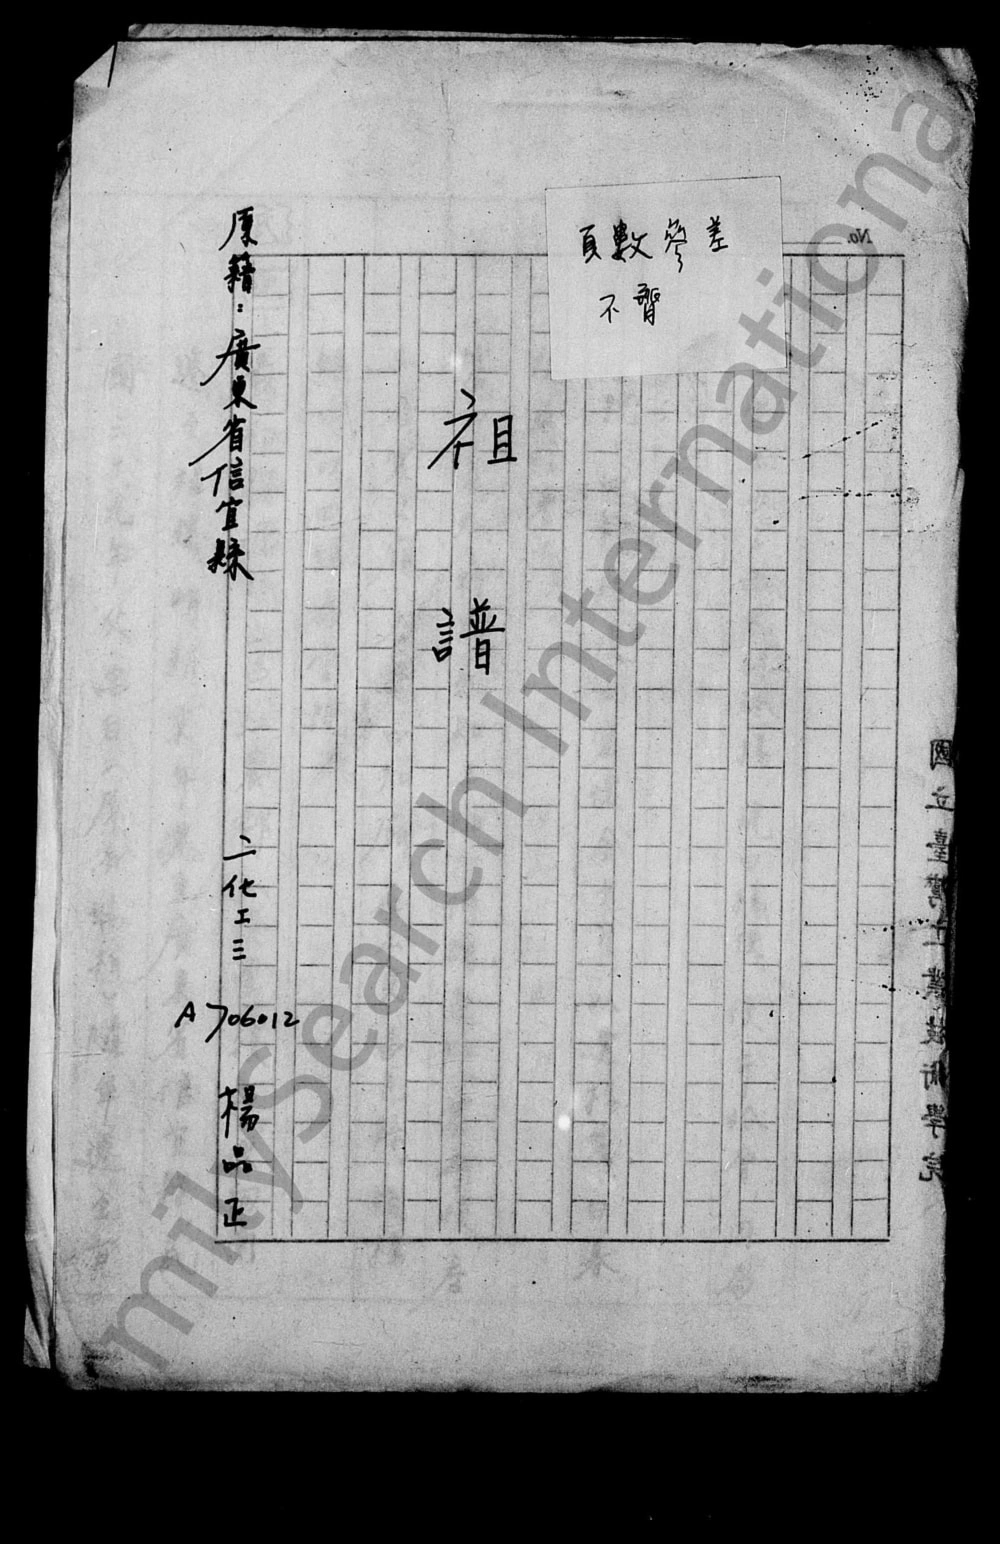 頁數參差
不齊
No.
祖譜
原籍：廣東省信宜縣
二化工三
A706012
楊品正
國立臺灣工業技術學院
milySearch Internationa